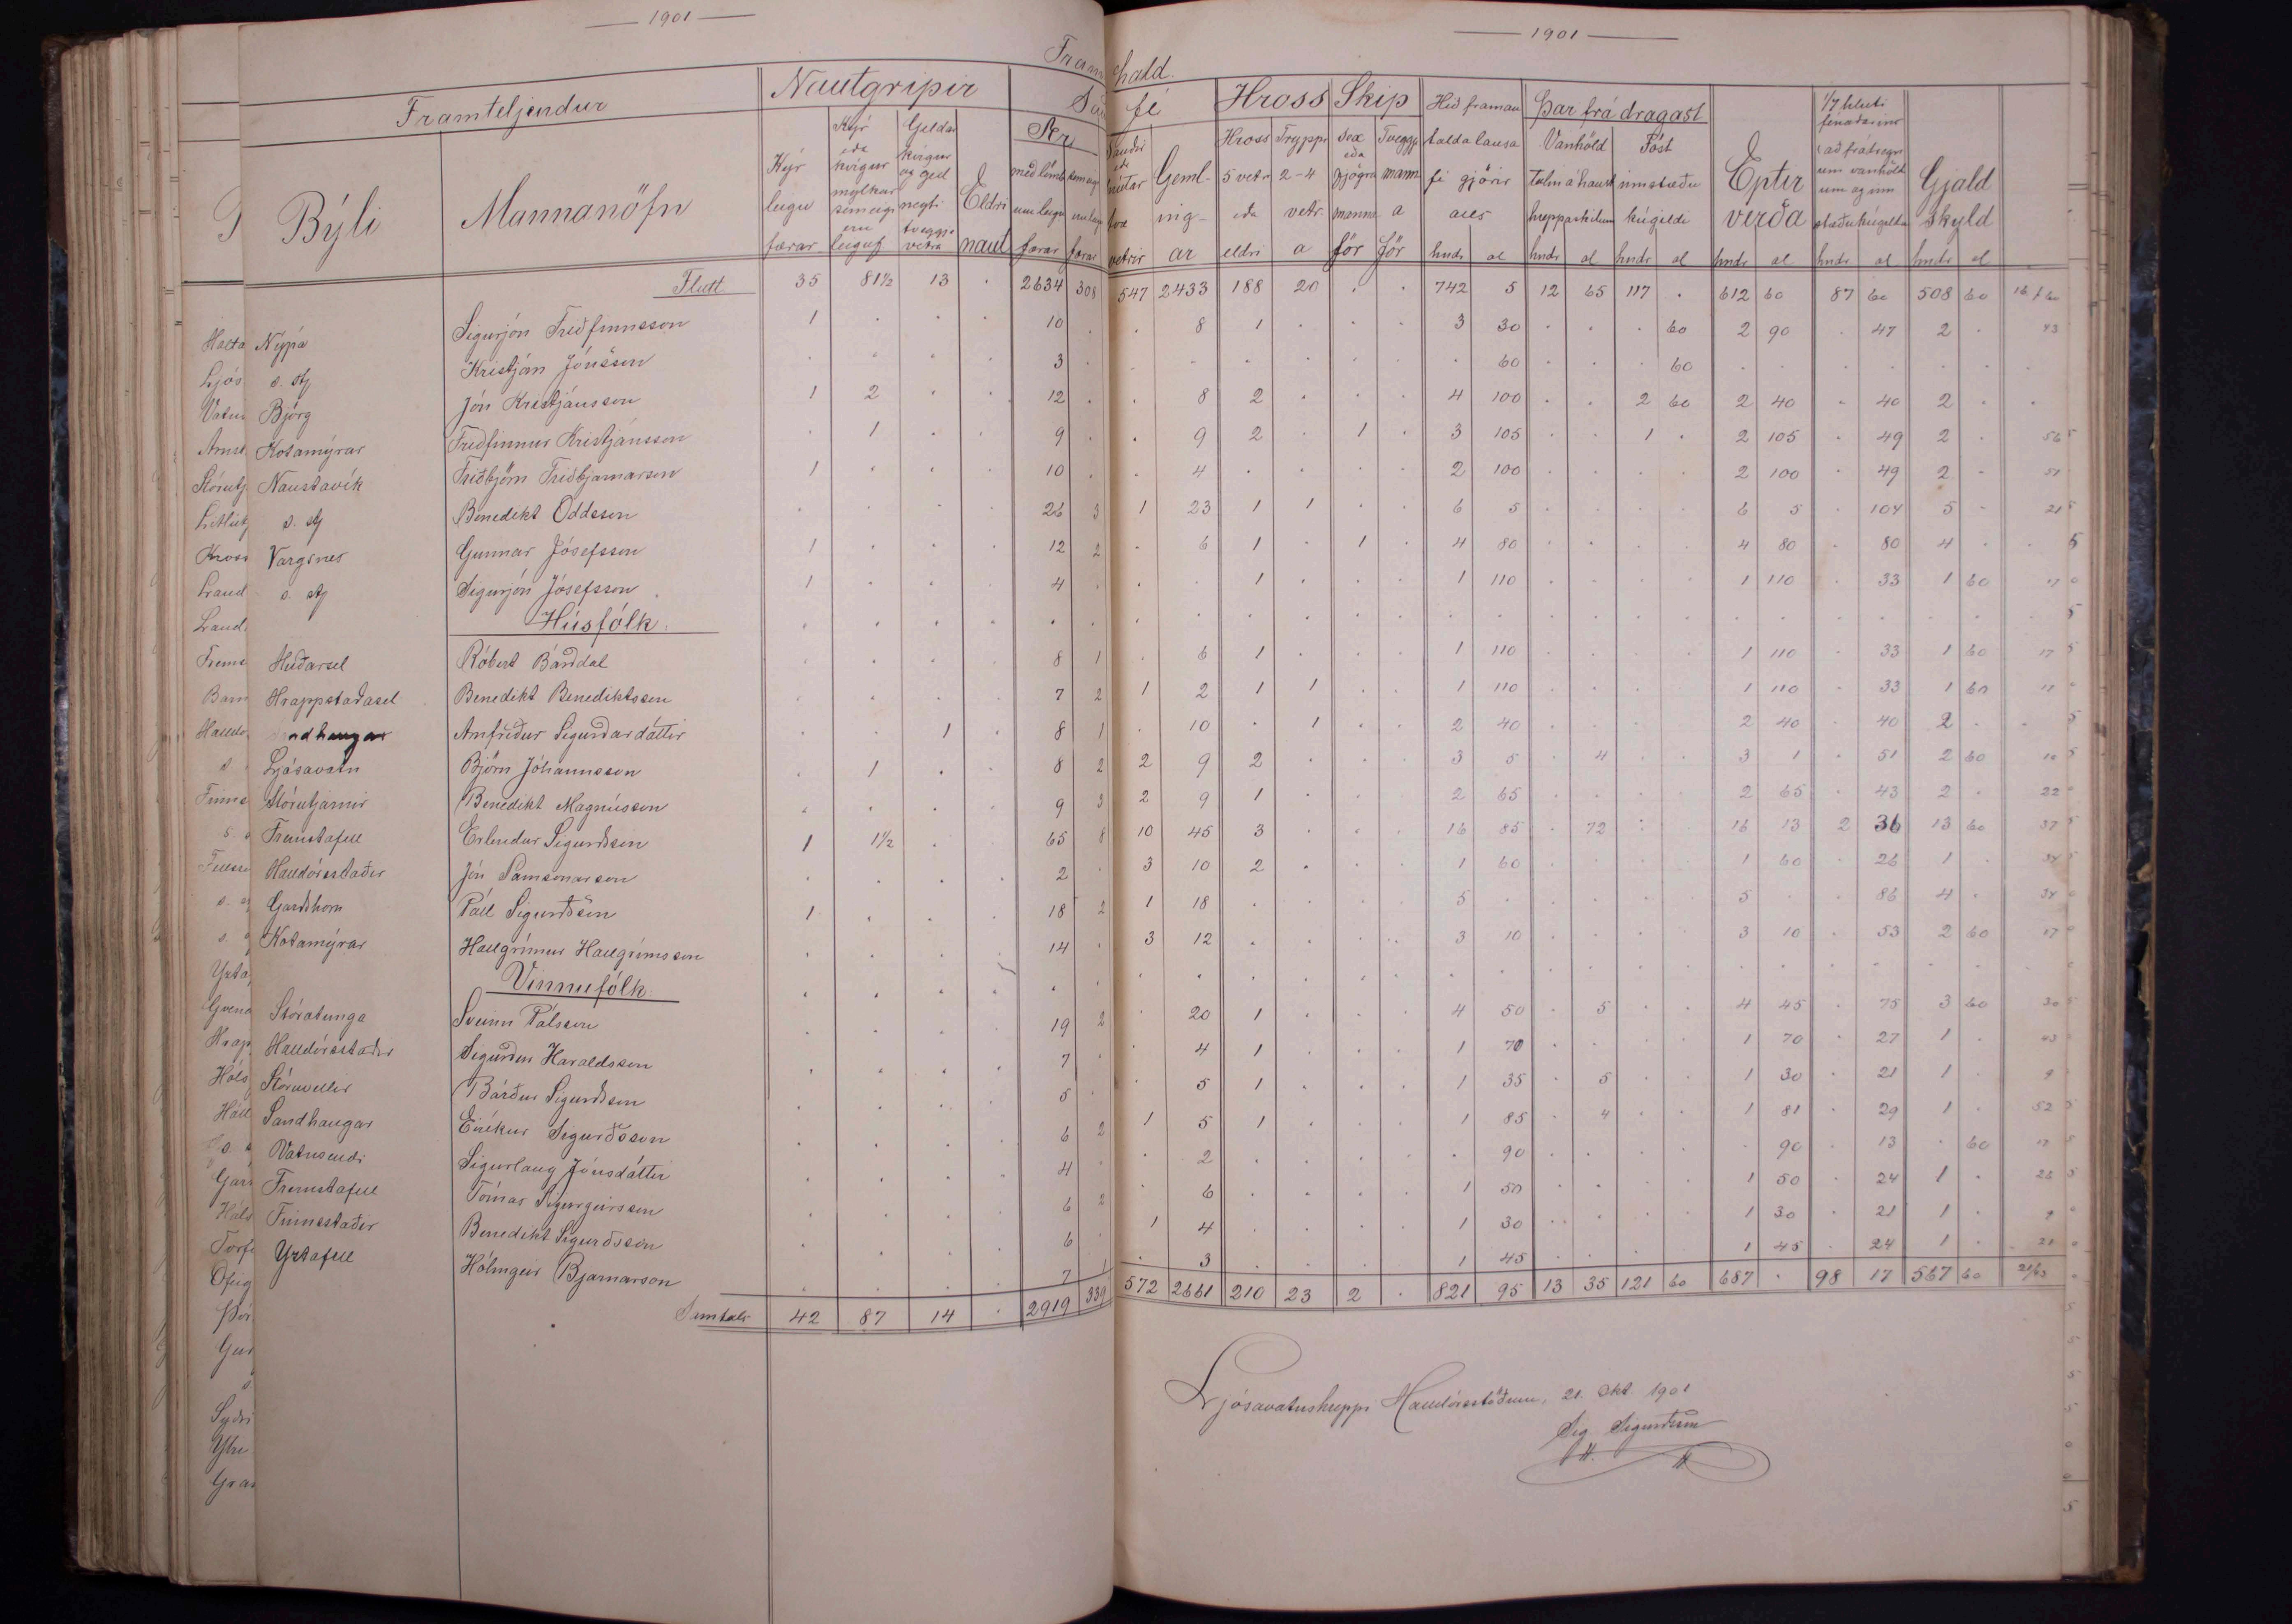 1901
1901
Fram hald.
Framteljendur
Nautgripir
fé
Hross
Skip
Hið framan talda lausa fé gjörir
Þar frá dragast
Eptir verða
Gjald skyld
Býli
Mannanöfn
Kýr leigu færar
Kýr eða kvígur mylkar sem eigi eru leiguf.
Geldar kvígur og geld neyti tveggja vetra
Eldri naut
Ær
með lömb um leigu færar
Geml- ing- ar
Hross 5 vetr. eða eldri
Tryppi 2-4 vetr. a
Sex eða fjögra manna för
Tveggj mann a för
Vanhöld
Föst
innstæðu kúgildi
hndr al hndr al hndr al hndr al hndr al hndr al
Flutt 35 81½ 13 . 2634 308 547 2433 188 20 . . 742 5 12 65 117 . 612 60 87 60 508 60
Nýpá Sigurjón Friðfinnsson 1 . . . 10 . . 8 1 . . . 3 30 . . . 60 2 90 . 47 2 . 43
s. st. Kristján Jónsson . . . . 3 . . . . . . . . 60 . . . 60 . . . . . .
Björg Jón Kristjánsson 1 2 . . 12 . . 8 2 . . . 4 100 . . 2 60 2 40 . 40 2 . .
Kotamýrar Friðfinnur Kristjánsson . 1 . . 9 . . 9 2 . 1 . 3 105 . . 1 . 2 105 . 49 2 . 56
Naustavík Friðbjörn Friðbjarnarson 1 . . . 10 . . 4 . . . . 2 100 . . . . 2 100 . 49 2 . 51
s. st. Benedikt Oddsson . . . . 26 3 1 23 1 1 . . 6 5 . . . . 6 5 . 104 5 . 21
Vargsnes Gunnar Jósefsson 1 . . . 12 2 . 6 1 . 1 . 4 80 . . . . 4 80 . 80 4 . .
s. st. Sigurjón Jósefsson 1 . . . 4 . . . 1 . . . 1 110 . . . . 1 110 . 33 1 60 17
Húsfólk.
Hlíðarsel Róbert Bárðdal . . . . 8 1 . 6 1 . . . 1 110 . . . . 1 110 . 33 1 60 17
Hrappstaðasel Benedikt Benediktsson . . . . 7 2 1 2 1 1 . . 1 110 . . . . 1 110 . 33 1 60 17
Sandhaugar Arnfríður Sigurðardóttir . . 1 . 8 1 . 10 . 1 . . 2 40 . . . . 2 40 . 40 2 . .
Ljósavatn Björn Jóhannsson . 1 . . 8 2 2 9 2 . . . 3 5 . 4 . . 3 1 . 51 2 60 10
Stórutjarnir Benedikt Magnússon . . . . 9 3 2 9 1 . . . 2 65 . . . . 2 65 . 43 2 . 22
Fremstafell Erlendur Sigurðsson 1 1½ . . 65 8 10 45 3 . . . 16 85 . 72 . . 16 13 2 36 13 60 37
Halldórsstaðir Jón Samsonarson . . . . 2 . 3 10 2 . . . 1 60 . . . . 1 60 . 26 1 . 34
Garðshorn Páll Sigurðsson 1 . . . 18 2 1 18 . . . . 5 . . . . . 5 . . 86 4 . 34
Kotamýrar Hallgrímur Hallgrímsson . . . . 14 . 3 12 . . . . 3 10 . . . . 3 10 . 53 2 60 17
Vinnufólk.
Stóratunga Sveinn Pálsson . . . . 19 2 . 20 1 . . . 4 50 . 5 . . 4 45 . 75 3 60 30
Halldórsstaðir Sigurður Haraldsson . . . . 7 . . 4 1 . . . 1 70 . . . . 1 70 . 27 1 . 43
Stóruvellir Bárður Sigurðsson . . . . 5 . . 5 1 . . . 1 35 . 5 . . 1 30 . 21 1 . 9
Sandhaugar Eiríkur Sigurðsson . . . . 6 2 1 5 1 . . . 1 85 . 4 . . 1 81 . 29 1 . 52
Vatnsendi Sigurlaug Jónsdóttir . . . . 4 . . 2 . . . . . 90 . . . . . 90 . 13 . 60 17
Fremstafell Tómas Sigurgeirsson . . . . 6 2 . 6 . . . . 1 50 . . . . 1 50 . 24 1 . 26
Finnsstaðir Benedikt Sigurðsson . . . . 6 . 1 4 . . . . 1 30 . . . . 1 30 . 21 1 . 9
Yztafell Hólmgeir Bjarnarson . . . . 7 1 . 3 . . . . 1 45 . . . . 1 45 . 24 1 . 21
Samtals 42 87 14 . 2919 339 572 2661 210 23 2 . 821 95 13 35 121 60 687 . 98 17 567 60
Ljósavatnshreppi Halldórsstöðum, 21. Okt 1901
Sig. Sigurðsson